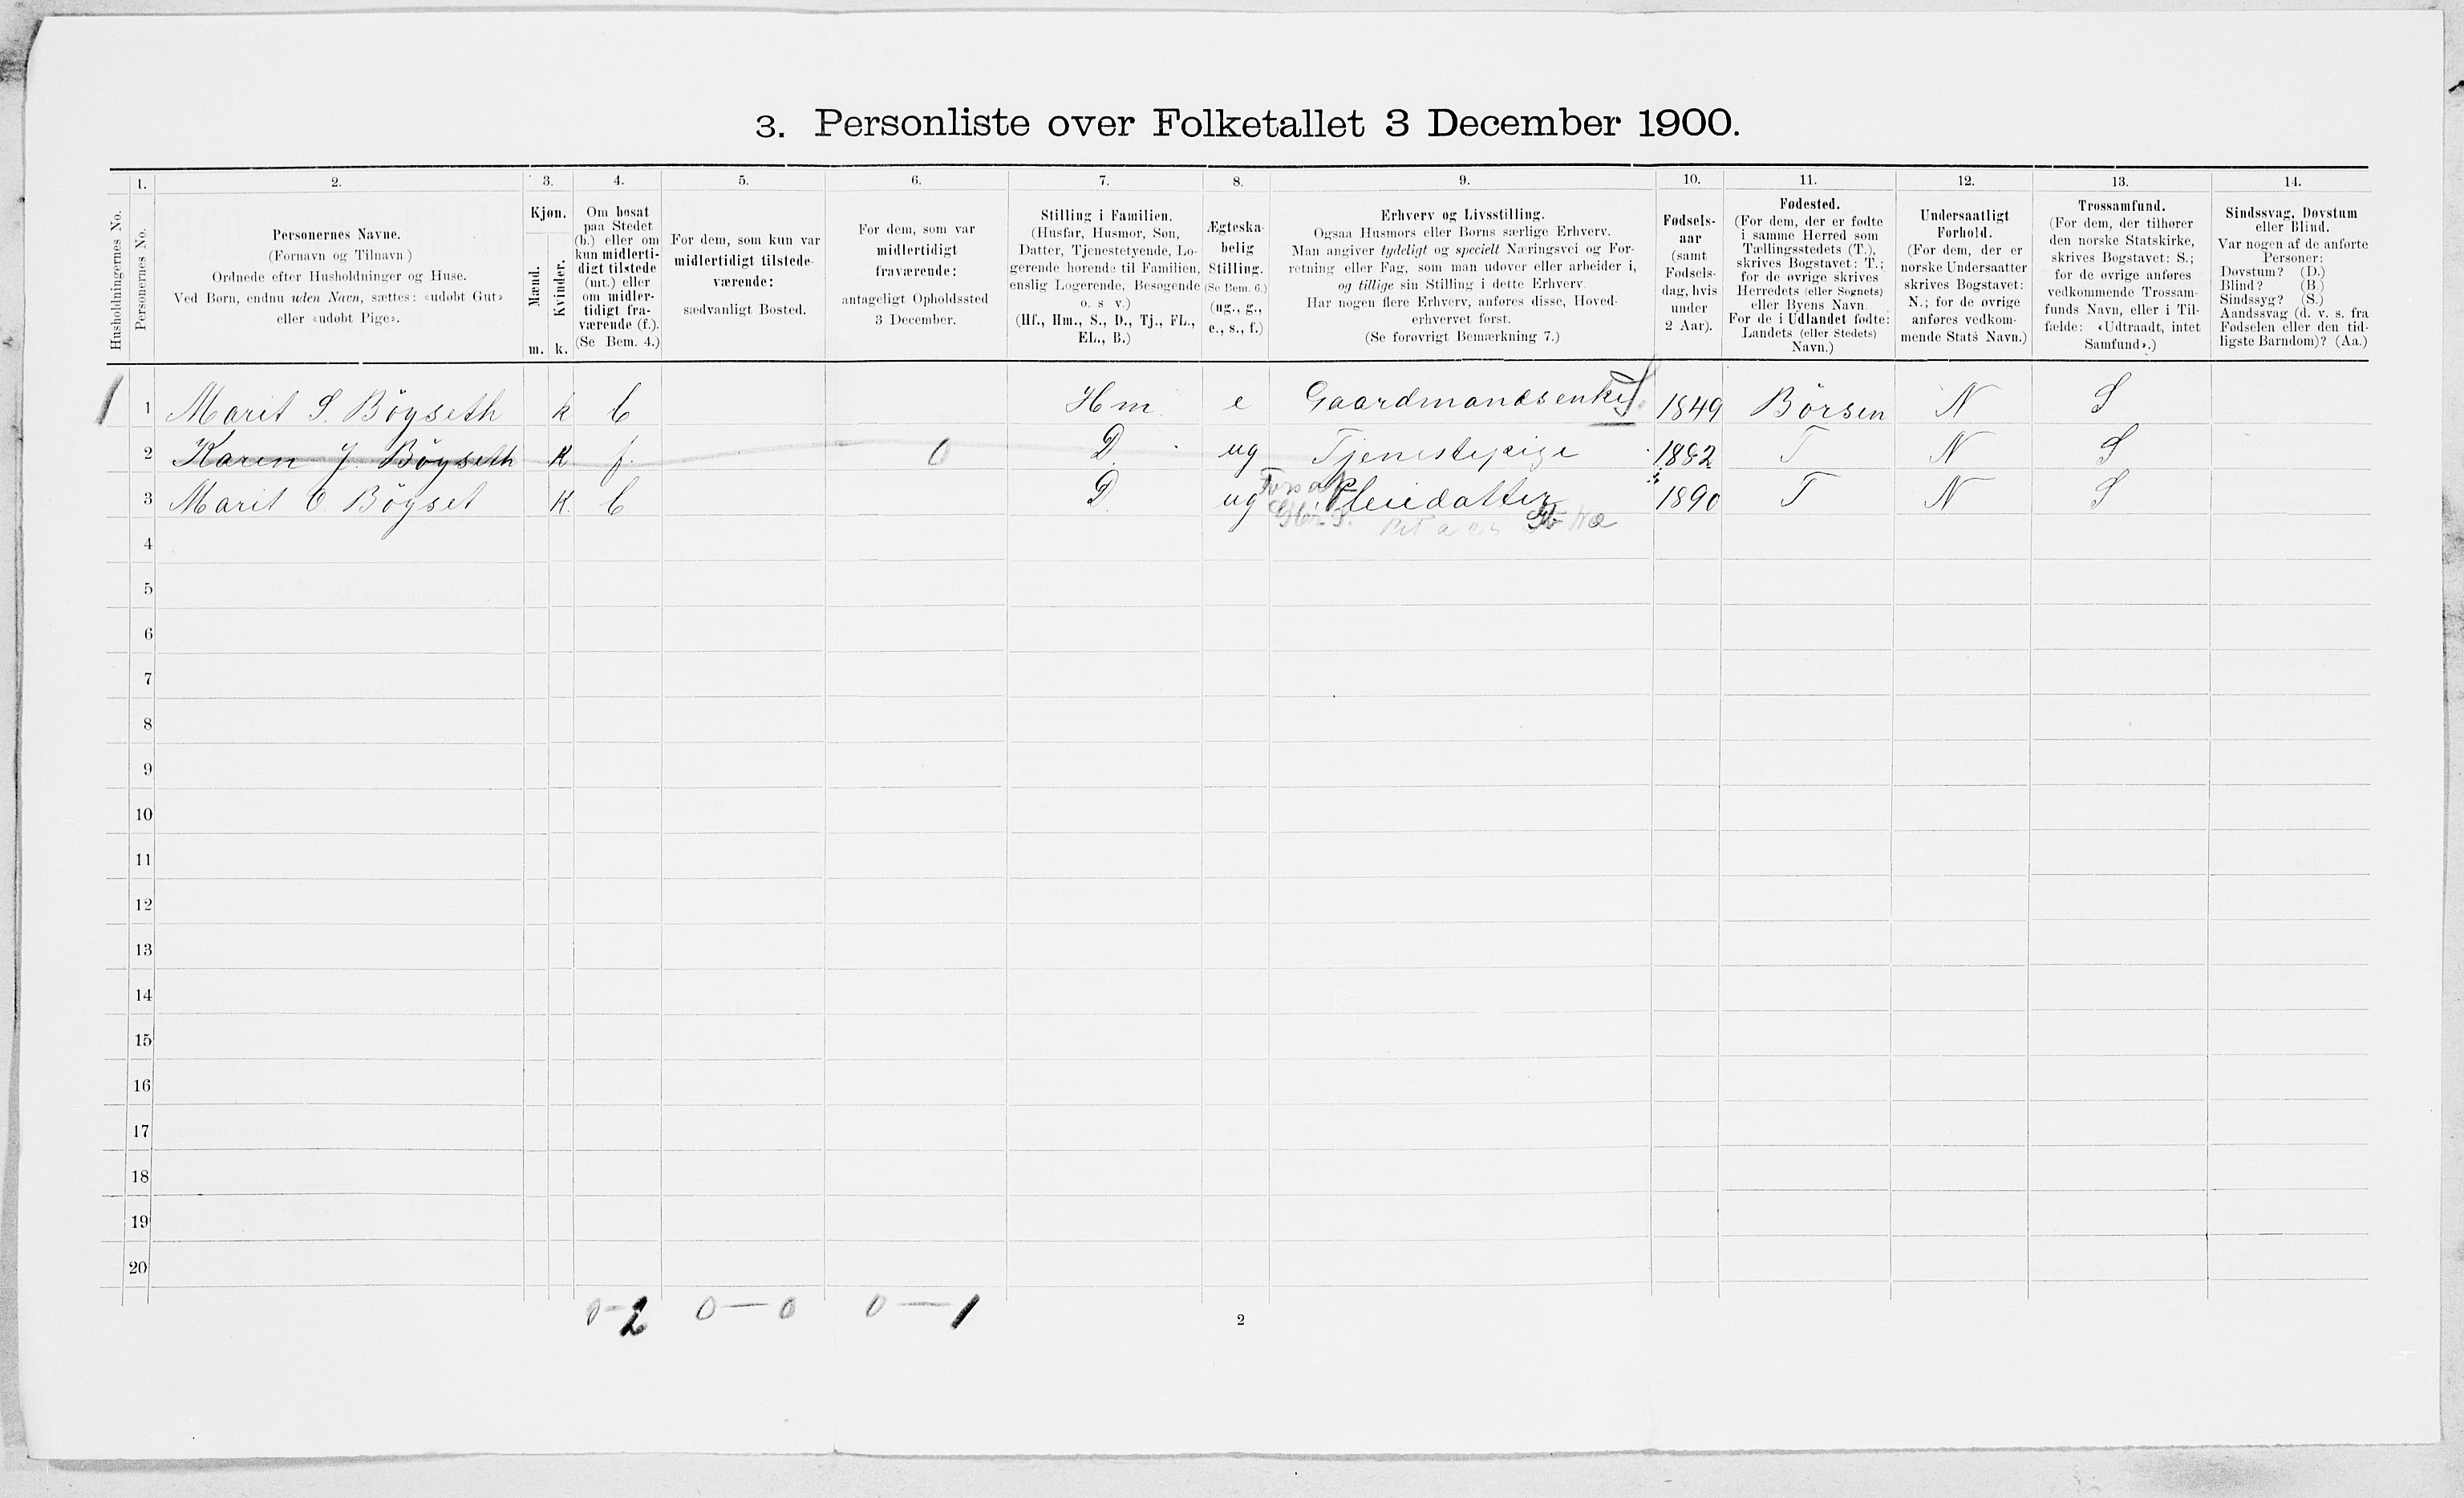 3. Personliste over Folketallet 3 December 1900.
1. 2. 3. 4. 5. 6. 7. 8. 9. 10. 11. 12. 13. 14.
Husholdningernes No.
Personernes No.
Personernes Navne.
(Fornavn og Tilnavn)
Ordnede efter Husholdninger og Huse.
Ved Børn, endnu uden Navn, sættes: «udøbt Gut»
eller «udøbt Pige».
Kjøn.
Mænd.
Kvinder.
m. k.
Om bosat
paa Stedet
(b.) eller om
kun midlerti-
digt tilstede
(mt.) eller
om midler-
tidigt fra-
værende (f.).
(Se Bem. 4.)
For dem, som kun var
midlertidigt tilstede-
værende:
sædvanligt Bosted.
For dem, som var
midlertidigt
fraværende:
antageligt Opholdssted
3 December.
Stilling i Familien.
(Husfar, Husmor, Søn,
Datter, Tjenestetyende, Lo-
gerende hørende til Familien,
enslig Logerende, Besøgende
o. s v.)
(Hf., Hm., S., D., Tj., FL.,
EL., B.)
Ægteska-
belig
Stilling.
(Se Bem. 6.)
(ug., g.,
e., s., f.)
Erhverv og Livsstilling.
Ogsaa Husmors eller Børns særlige Erhverv.
Man angiver tydeligt og specielt Næringsvei og For-
retning eller Fag, som man udøver eller arbeider i,
og tillige sin Stilling i dette Erhverv.
Har nogen flere Erhverv, anføres disse, Hoved-
erhvervet først.
(Se forøvrigt Bemærkning 7.)
Fødsels-
aar
(samt
Fødsels-
dag, hvis
under
2 Aar).
Fødested.
(For dem, der er fødte
i samme Herred som
Tællingsstedets (T.),
skrives Bogstavet: T.;
for de øvrige skrives
Herredets (eller Sognets)
eller Byens Navn
For de i Udlandet fødte:
Landets (eller Stedets)
Navn.)
Undersaatligt
Forhold.
(For dem, der er
norske Undersaatter
skrives Bogstavet:
N.; for de øvrige
anføres vedkom-
mende Stats Navn.)
Trossamfund.
(For dem, der tilhører
den norske Statskirke,
skrives Bogstavet: S.;
for de øvrige anføres
vedkommende Trossam-
funds Navn, eller i Til-
fælde: «Udtraadt, intet
Samfund».)
Sindssvag, Døvstum
eller Blind.
Var nogen af de anførte
Personer:
Døvstum? (D.)
Blind? (B.)
Sindssyg? (S.)
Aandssvag (d. v. s. fra
Fødselen eller den tid-
ligste Barndom)? (Aa.)
1 1 Marit S. Böyseth k b Hm e Gaardmandsenke 1849 Börsen N S
2 Karen J. Böyseth k f. 0 D. ug Tjenestepige 1882 T N S
3 Marit O Böyset k b D. ug Pleiedatter 1890 T N S
4
5
6
7
8
9
10
11
12
13
14
15
16
17
18
19
20
0-2 0-0 0-1
2